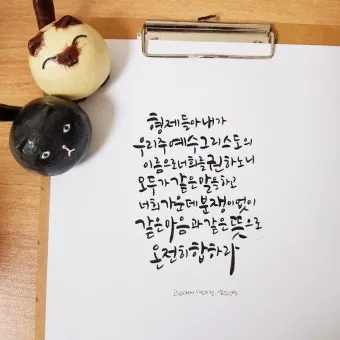 형제들아 내가
우리 주 예수 그리스도의
이름으로 너희를 권하노니
모두가 같은 말을 하고
너희 가운데 분쟁이 없이
같은 마음과 같은 뜻으로
온전히 합하라